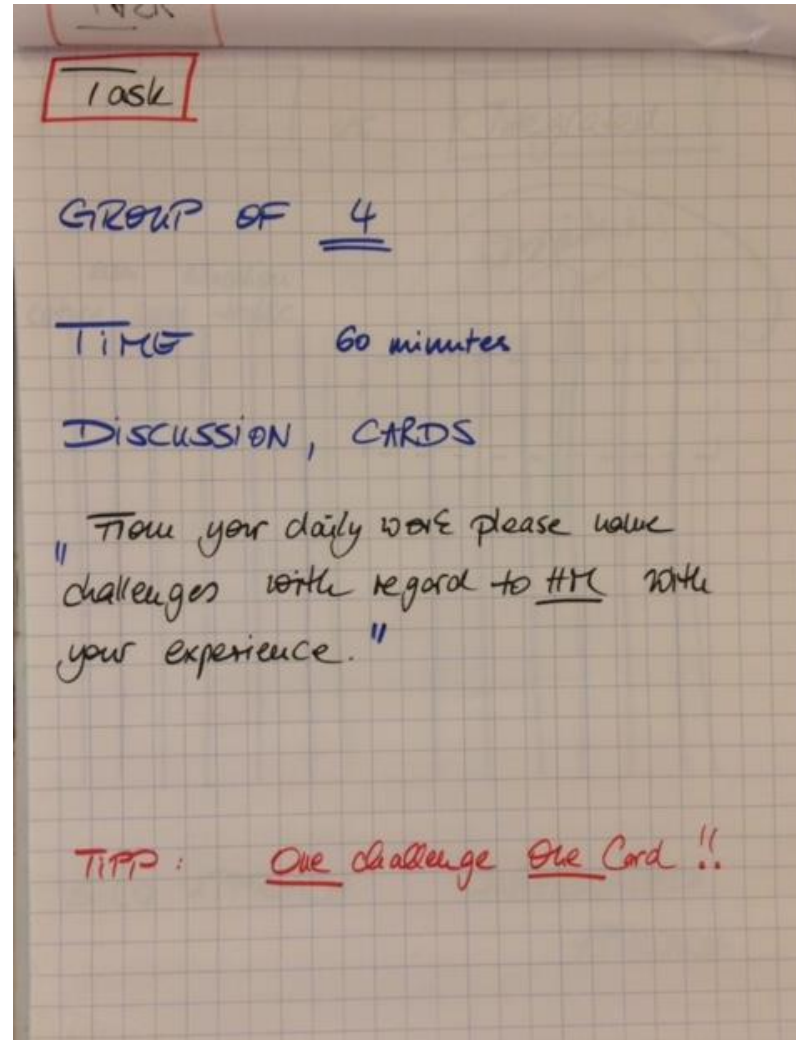 Task
GROUP OF 4
TIME 60 minutes
DISCUSSION, CARDS
„From your daily work please name
challenges with regard to HM with
your experience."
TIPP: One challenge One Card !!